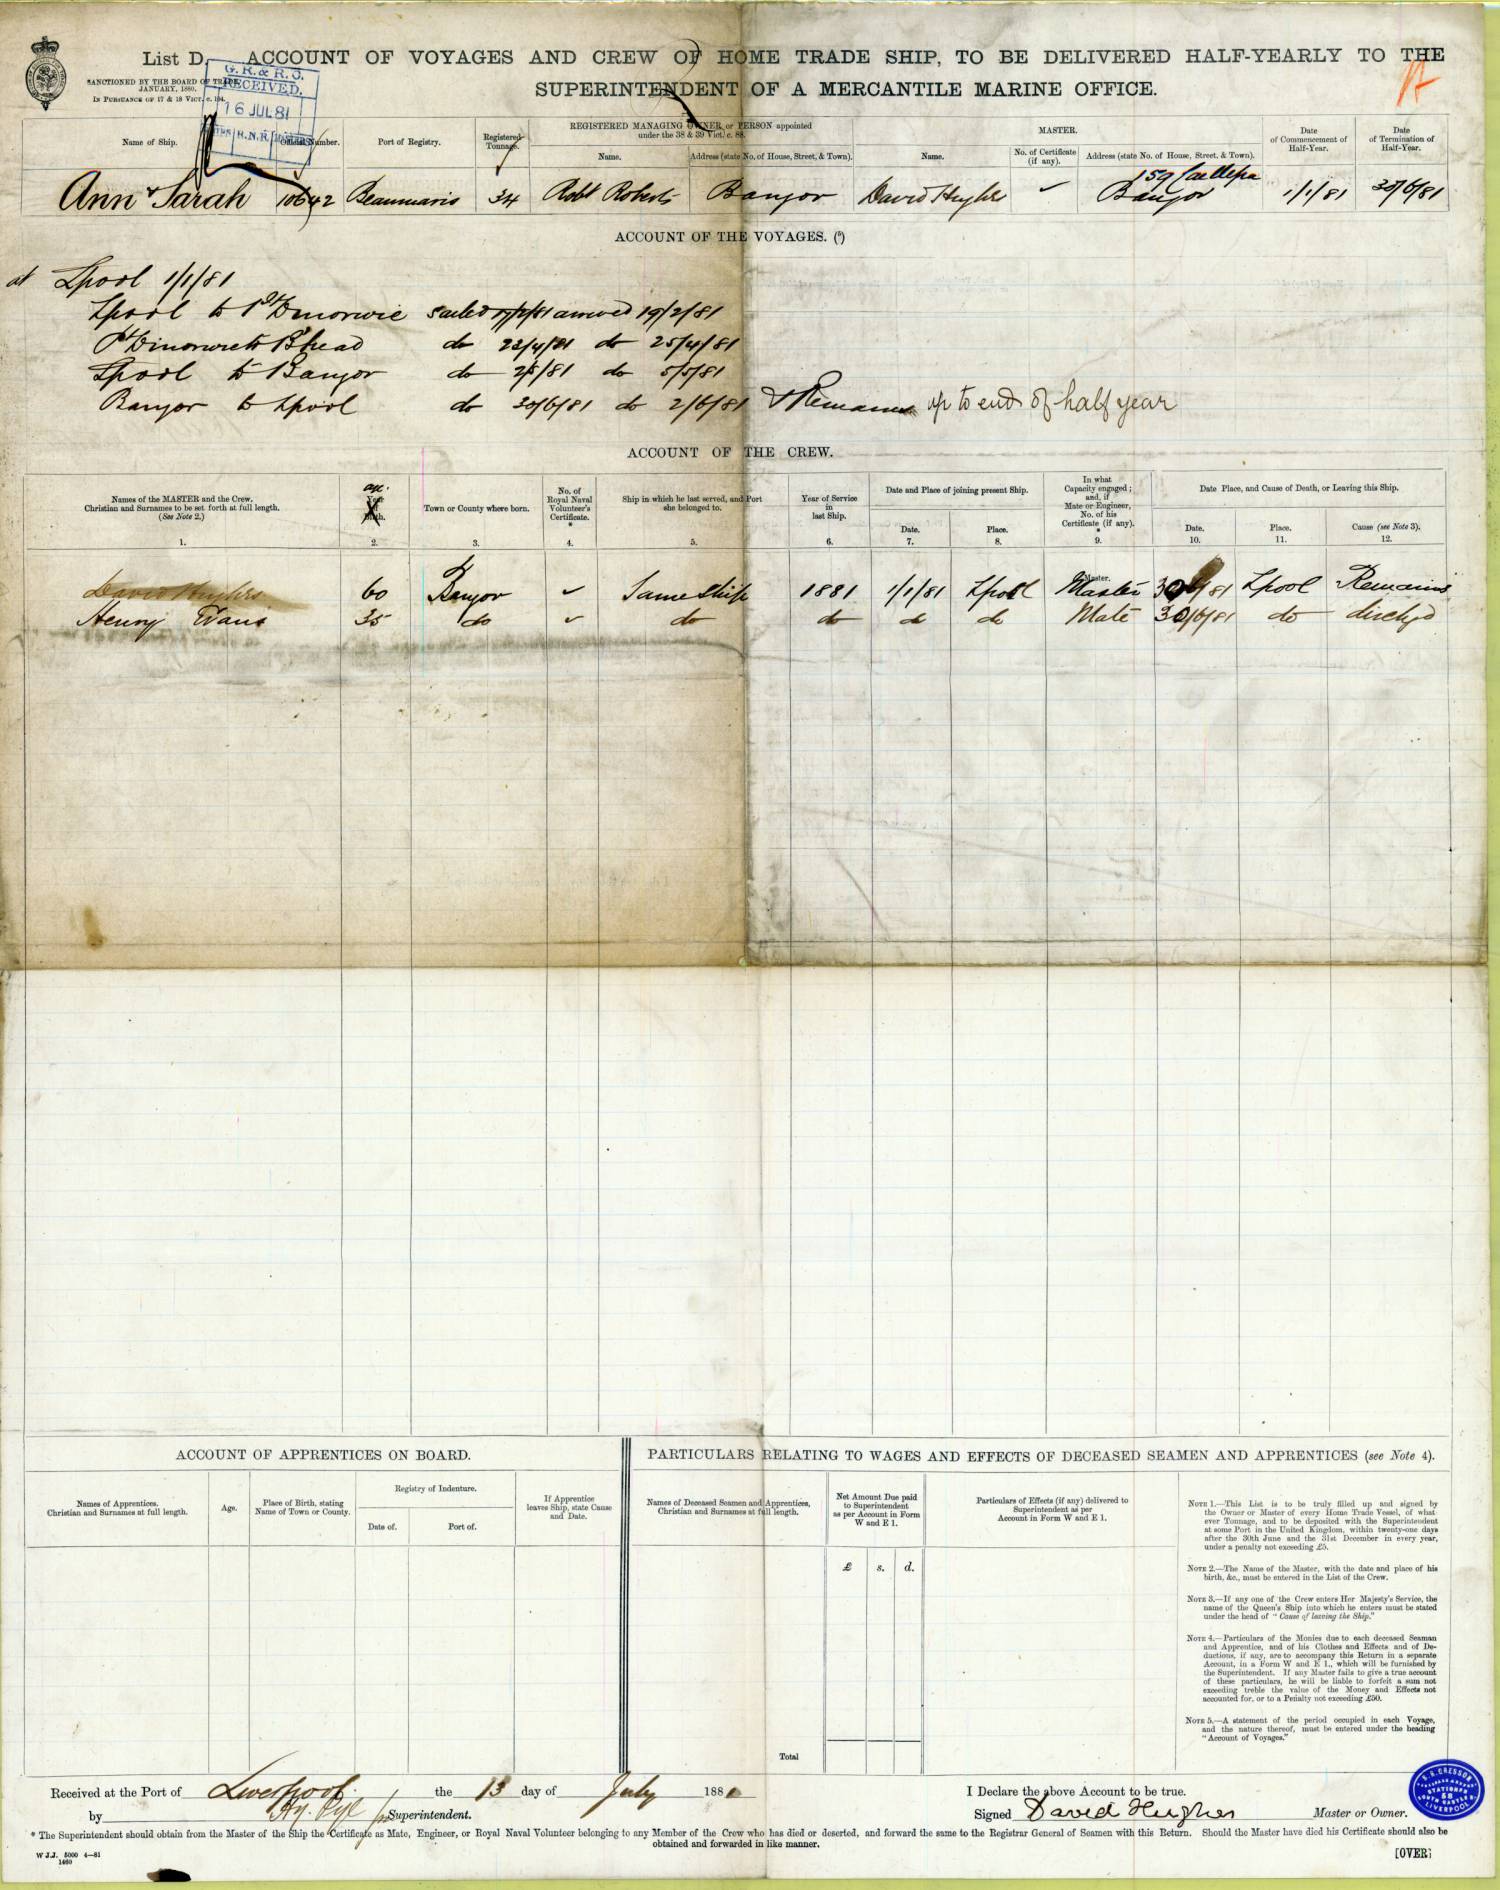 List D. ACCOUNT OF VOYAGES AND CREW OF HOME TRADE SHIP, TO BE DELIVERED HALF-YEARLY TO THE
SUPERINTENDENT OF A MERCANTILE MARINE OFFICE.
SANCTIONED BY THE BOARD OF TRADE
JANUARY, 1880.
IN PURSUANCE OF 17 & 18 VICT. c. 104.
G.R. & R.S.
RECEIVED.
16 JUL 81
R.N.R.
REGISTERED MANAGING OWNER or PERSON appointed
under the 38 & 39 Vict. c. 88.
MASTER.
Name of Ship.
Official Number.
Port of Registry.
Registered Tonnage.
Name.
Address (state No. of House, Street, & Town).
Name.
No. of Certificate (if any).
Address (state No. of House, Street, & Town).
Date of Commencement of Half-Year.
Date of Termination of Half-Year.
159
Ann & Sarah 10642 Beaumaris 34 Robt Roberts Bangor David Hughes Bangor 1/1/81 30/6/81
ACCOUNT OF THE VOYAGES. (5)
at Lpool 1/1/81
Lpool to Pt Dinorwic sailed arrived 19/2/81
Pt Dinorwic to B'head do 23/4/81 do 25/4/81
Lpool to Bangor do 2/5/81 do 5/5/81
Bangor to Lpool do 30/6/81 do 2/6/81 & Remains up to end of half year
ACCOUNT OF THE CREW.
Names of the MASTER and the Crew.
Christian and Surnames to be set forth at full length.
(See Note 2.)
1.
age.
Year Birth.
2.
Town or County where born.
3.
No. of Royal Naval Volunteer's Certificate.
*
4.
Ship in which he last served, and Port she belonged to.
5.
Year of Service in last Ship.
6.
Date and Place of joining present Ship.
Date.
7.
Place.
8.
In what Capacity engaged; and, if Mate or Engineer, No. of his Certificate (if any).
*
9.
Date, Place, and Cause of Death, or Leaving this Ship.
Date.
10.
Place.
11.
Cause (see Note 3).
12.
Master.
David Hughes 60 Bangor Same Ship 1881 1/1/81 Lpool Master 30/6/81 Lpool Remains
Henry Evans 35 do do do do do Mate 30/6/81 do dischgd
ACCOUNT OF APPRENTICES ON BOARD.
Names of Apprentices.
Christian and Surnames at full length.
Age.
Place of Birth, stating Name of Town or County.
Registry of Indenture.
Date of.
Port of.
If Apprentice leaves Ship, state Cause and Date.
PARTICULARS RELATING TO WAGES AND EFFECTS OF DECEASED SEAMEN AND APPRENTICES (see Note 4).
Names of Deceased Seamen and Apprentices,
Christian and Surnames at full length.
Net Amount Due paid to Superintendent as per Account in Form W and E 1.
£ s. d.
Particulars of Effects (if any) delivered to Superintendent as per Account in Form W and E 1.
Total
NOTE 1.—This List is to be truly filled up and signed by
the Owner or Master of every Home Trade Vessel, of what-
ever Tonnage, and to be deposited with the Superintendent
at some Port in the United Kingdom, within twenty-one days
after the 30th June and the 31st December in every year,
under a penalty not exceeding £5.
NOTE 2.—The Name of the Master, with the date and place of his
birth, &c., must be entered in the List of the Crew.
NOTE 3.—If any one of the Crew enters Her Majesty's Service, the
name of the Queen's Ship into which he enters must be stated
under the head of "Cause of leaving the Ship."
NOTE 4.—Particulars of the Monies due to each deceased Seaman
and Apprentice, and of his Clothes and Effects and of De-
ductions, if any, are to accompany this Return in a separate
Account, in a Form W and E 1., which will be furnished by
the Superintendent. If any Master fails to give a true account
of these particulars, he will be liable to forfeit a sum not
exceeding treble the value of the Money and Effects not
accounted for, or to a Penalty not exceeding £50.
NOTE 5.—A statement of the period occupied in each Voyage,
and the nature thereof, must be entered under the heading
"Account of Voyages."
Received at the Port of Liverpool the 13 day of July 1881
by Hy. Pyle Superintendent.
I Declare the above Account to be true.
Signed David Hughes Master or Owner.
* The Superintendent should obtain from the Master of the Ship the Certificate as Mate, Engineer, or Royal Naval Volunteer belonging to any Member of the Crew who has died or deserted, and forward the same to the Registrar General of Seamen with this Return. Should the Master have died his Certificate should also be
obtained and forwarded in like manner.
W J.J. 5000 4—81
1460
[OVER]
LIVERPOOL